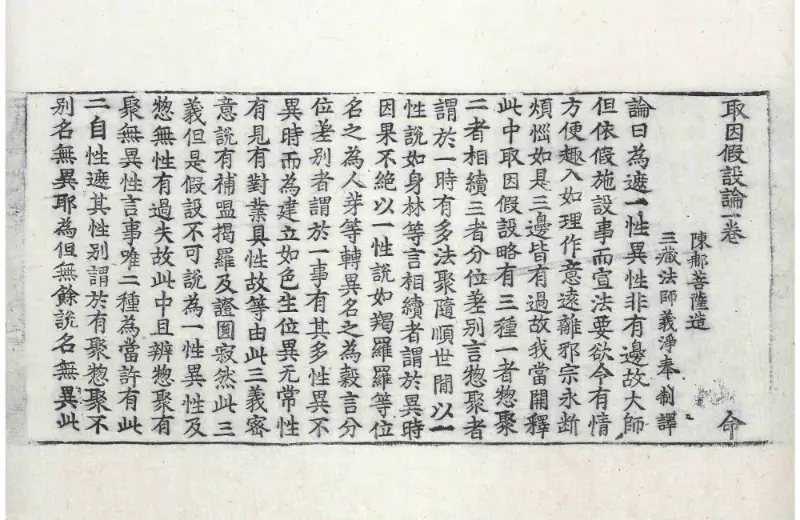 取因假設論一卷　命
陳那菩薩造
三藏法師義淨奉　制譯
論曰為遮一性異性非有邊故大師
但依假施設事而宣法要欲令有情
方便趣入如理作意遠離邪宗永斷
煩惱如是三邊皆有過故我當開釋
此中取因假設略有三種一者惣聚
二者相續三者分位差別言惣聚者
謂於一時有多法聚隨順世間以一
性說如身林等言相續者謂於異時
因果不絕以一性說如羯羅羅等位
名之為人芽等轉異名之為穀言分
位差別者謂於一事有其多性異不
異時而為建立如色生位異无常性
有見有對業具性故等由此三義密
意說有補㗌揭羅及證圓寂然此三
義但是假設不可說為一性異性及
惣無性有過失故此中且辨惣聚有
聚無異性言事唯二種為當許有此
二自性遮其性別謂於有聚惣聚不
別名無異耶為但無餘說名無異此